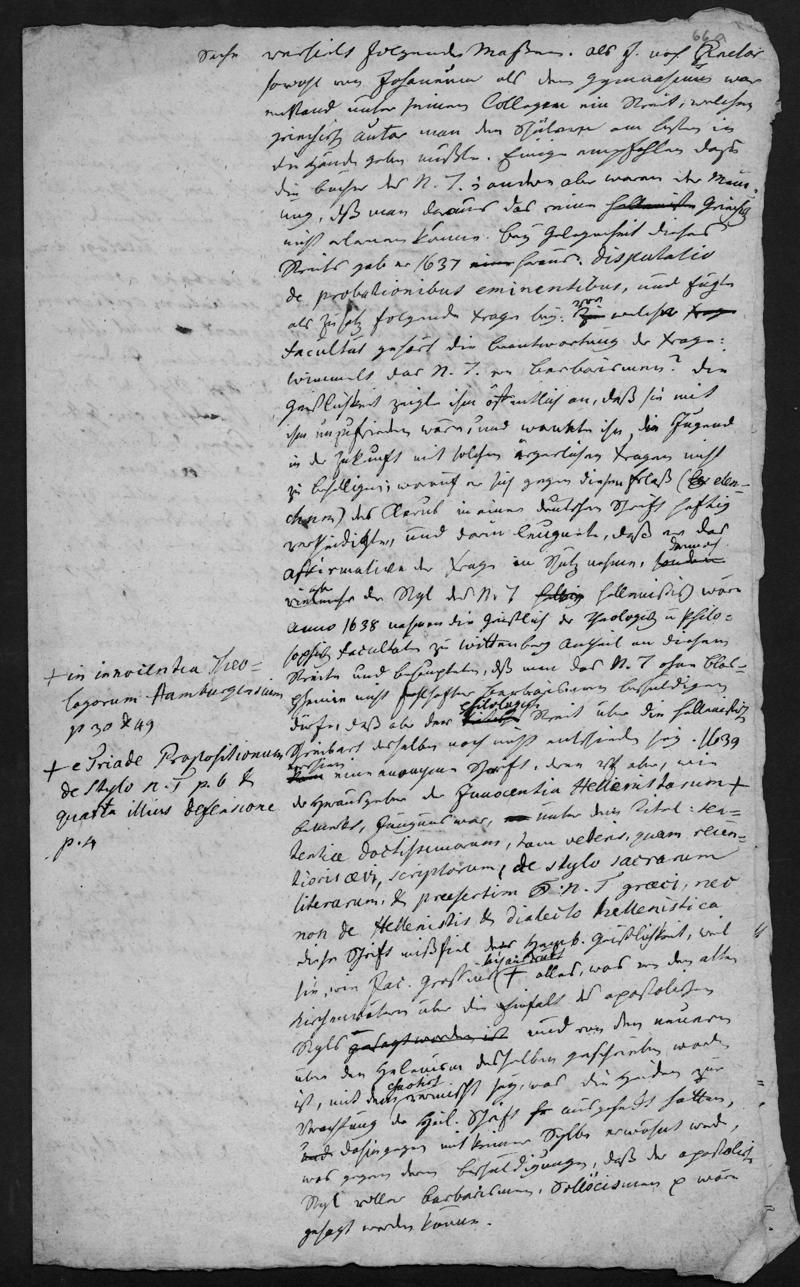 66a
Sache verhielt folgender Maßen. als J. noch Rector
sowohl am Johanneum als dem Gymnasium war
entstand unter seinen Collegen ein Streit, welchen
griechisch autor man den Schülern am besten in
die Hände geben müßte. Einige empfahlen dazu
die bücher des N. T.; andere aber waren der Mein-
ung, daß man daraus das reine Griechisch
nicht erlernen könne. bey Gelegenheit dieses
Streits gab er 1637 heraus. disputatio
de probationibus eminentibus, und fügte
als Zusatz folgende Frage bey: von welcher
Facultät gehört die beantwortung der Frage:
wimmelt das N. T. von barbarismen? Die
Geistlichkeit zeigte ihm öffentlich an, daß sie mit
ihm unzufrieden wäre, und warnte ihn, die Jugend
in der Zukunft mit solchen ärgerlichen Fragen nicht
zu behelligen; worauf er sich gegen diesen Erlaß (elen-
chum) des Clerus in einer deutschen Schrift heftig
vertheidigte, und darin leugnete, daß er das
affirmative der Frage in Schutz nehme, dennoch
aber der Styl des N. T hellenistisch wäre
anno 1638 nahmen die Geistlich der theologisch u philo-
sophisch Facultaten zu Wittenberg Antheil an diesem
Streite und behaupteten, daß man das N. T ohne blas-
phemie nicht barbarismen beschuldigen
dürfe, daß aber der philologisch Streit über die hellenistisch
Schreibart desselben noch nicht entschieden sey. 1639
erschien eine anonyme Schrift, deren Vf aber, wie
der Herausgeber der Innocentia Hellenistarum +
bemerkt, Jungius war, unter dem Titel: sen-
tentiæ doctissimorum, tam veteris, quam recen-
tioris ævi, scriptorum, de stylo sacrarum
literarum, & præsertim N. T græci, nec
non de Hellenistis & dialecto hellenistica
diese Schrift mißfiel der Hamb. Geistlichkeit, weil
sie, wie Jac. Grosse sich ausdrückt + alles, was von den alten
Kirchenvätern über die Einfalt des apostolischen
Styls gesagt worden ist und von den neuern
über den Helenism desselben geschrieben worden
ist, mit dem vermischt sey, was die Heiden zur
Verachtung der Heil. Schrift ausgesetzt hatten,
dahingegen mit keiner Sylbe erwähnt werde,
was gegen deren beschuldigungen, daß der apostolisch
Styl voller barbarismen, Solöcismen p wäre
gesagt werden könne.
+ in innocentia Theo-
logorum Hamburgensium
p 30 & 49
+ e Triade Propositionum
de stylo N. T p. 6 &
quarta illius defensione
p. 4